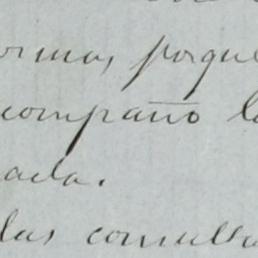 orma, porque
compaño l
ada.
las consult